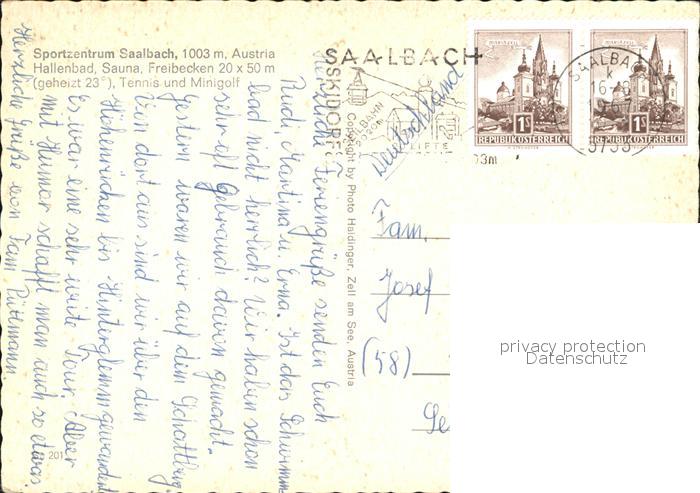 Sportzentrum Saalbach, 1003 m, Austria
Hallenbad, Sauna, Freibecken 20 x 50 m
(geheizt 23°), Tennis und Minigolf
SAALBACH
SKIDORF
LIFTE
SAALBA
16-8
REPUBLIK ÖSTERREICH
1S
REPUBLIK ÖSTERREICH
1S
03m
Deutschland
Herzliche Feriengrüße senden Euch
Rudi, Martina u. Erna. Ist das Schwimm-
bad nicht herrlich? Wir haben schon
sehr oft Gebrauch davon gemacht.
Gestern waren wir auf dem Schattberg
Von dort aus sind wir über den
Höhenrücken bis Hinterglemm gewandert
Es war eine sehr weite Tour. Aber
mit Humor schafft man auch so etwas
Herzliche Grüße von Fam
Copyright by Photo Haidinger, Zell am See, Austria
Fam.
Josef
(58)
Ge
201
privacy protection
Datenschutz